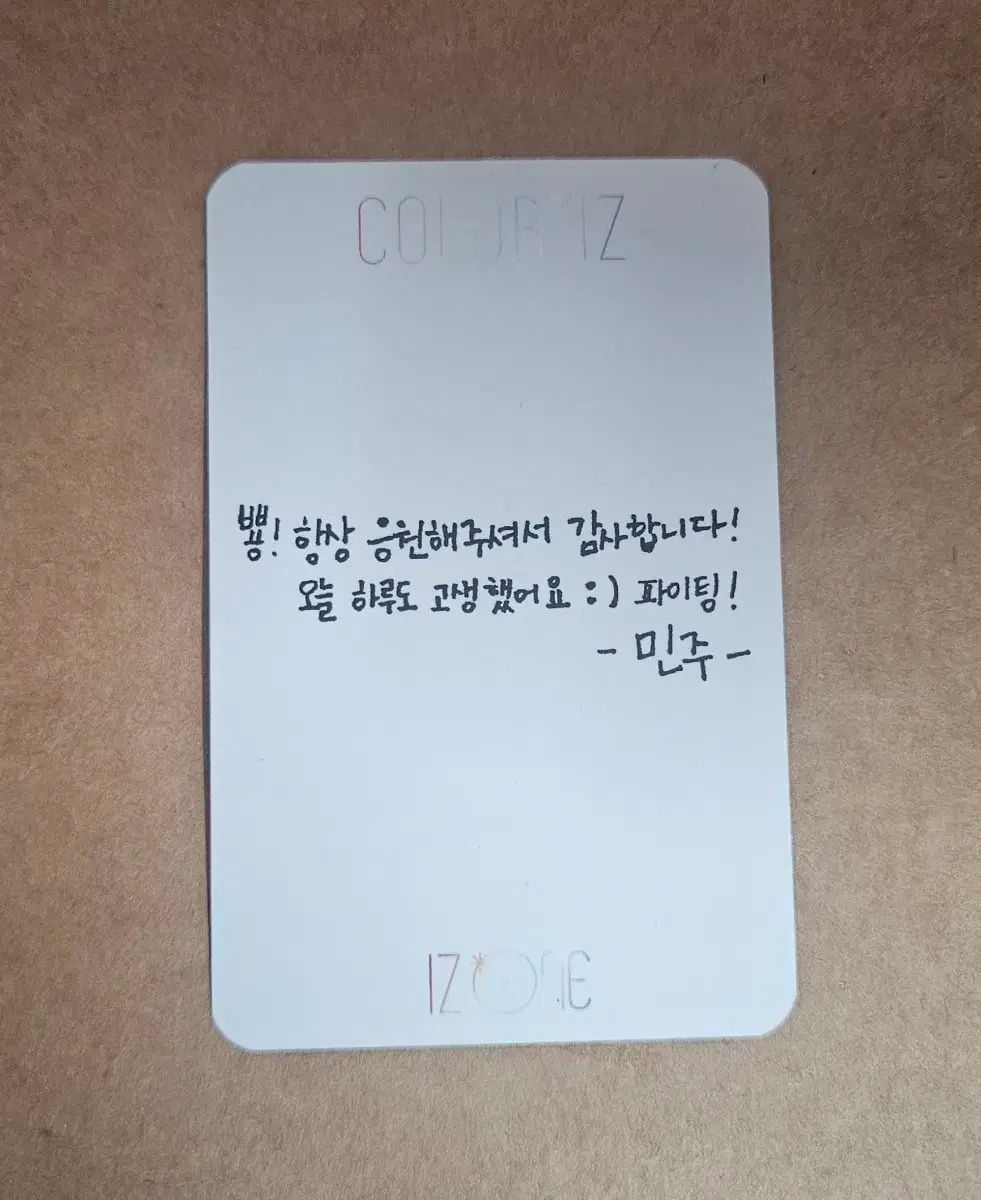 COLOR*IZ
뿅! 항상 응원해주셔서 감사합니다!
오늘 하루도 고생했어요 :) 파이팅!
- 민주 -
IZ*ONE